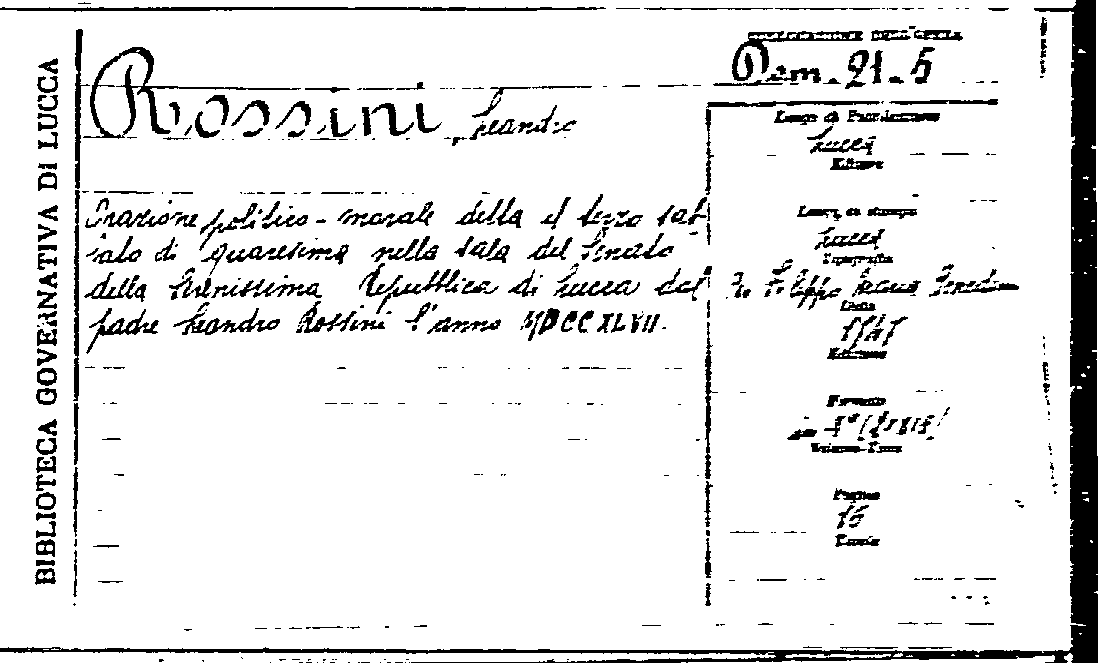 BIBLIOTECA GOVERNATIVA DI LUCCA
COLLOCAZIONE DELL'OPERA
Dam. 21. 5
Rossini, Leandro
Orazione politico-morale della il terzo sab
iato di quaresima nella sala del Senato
della Serenissima Repubblica di Lucca dal
padre Leandro Rossini l'anno MDCCXLVII.
Luogo di Pubblicazione
Lucca
Editore
Luogo di stampa
Lucca
Tipografia
Filippo Maria Benedini
Data
1747
Edizione
Formato
in 4°
Volume-Tomo
Pagine
15
Tavole